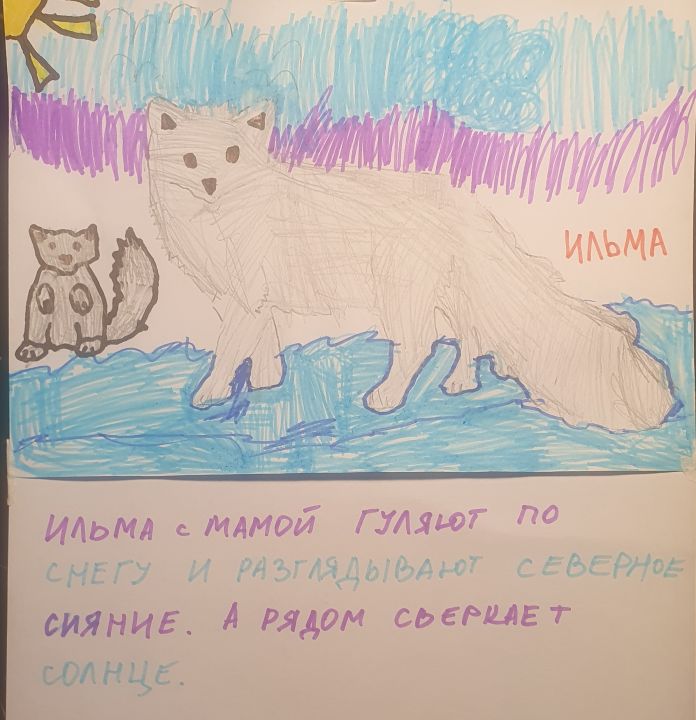 ИЛЬМА
ИЛЬМА с МАМОЙ ГУЛЯЮТ ПО
СНЕГУ И РАЗГЛЯДЫВАЮТ СЕВЕРНОЕ
СИЯНИЕ. А РЯДОМ СВЕРКАЕТ
СОЛНЦЕ.